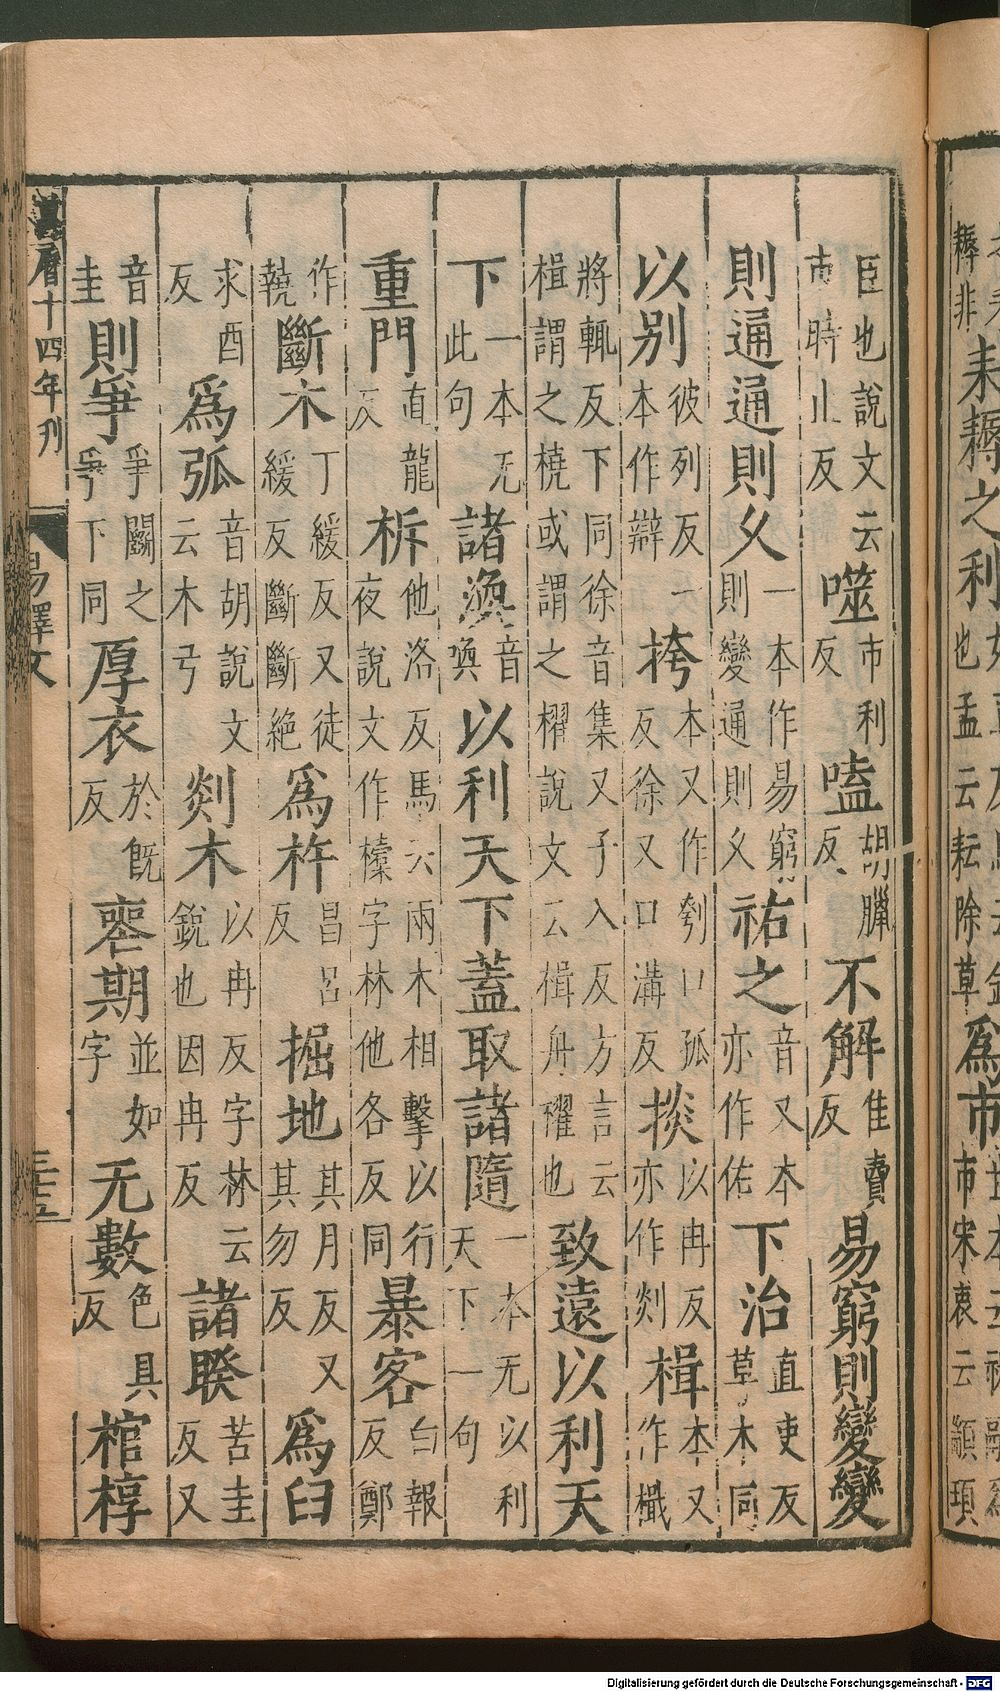 臣也說文云市時止反噬市利反嗑胡臘反不解隹賣反易窮則變變
則通通則通則久一本作易窮則變通則久祐之音又本亦作佑下治直吏反草木同
以別彼列反一本作辯挎本又作刳口孤反徐又口溝反掞以冉反亦作剡楫本又作檝
將輒反下同徐音集又子入反方言云楫謂之橈或謂之櫂說文云楫舟櫂也致遠以利天
下一本无此句諸渙音喚以利天下蓋取諸隨一本无以利天下一句
重門直龍反柝他洛反馬云兩木相擊以行夜說文作㯓字林他各反同暴客白報反鄭
作虣斷木丁緩反又徒緩反斷斷絕爲杵昌呂反掘地其月反又其勿反爲臼
求酉反爲弧音胡說文云木弓剡木以冉反字林云銳也因冉反諸睽苦圭反又
音圭則爭爭鬭之爭下同厚衣於旣反喪期並如字无數色具反棺椁
萬曆十四年刊
易釋文
三十五
耒耨之利
爲市
Digitalisierung gefördert durch die Deutsche Forschungsgemeinschaft - DFG